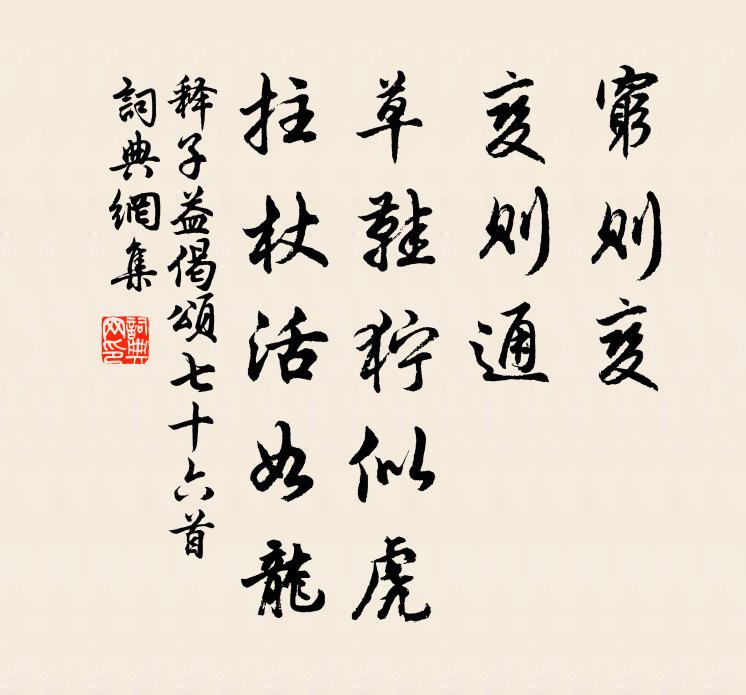 窮則变
变則通
草鞋狞似虎
拄杖活如龍
释子益偈頌七十六首
詞典網集
詞典网印